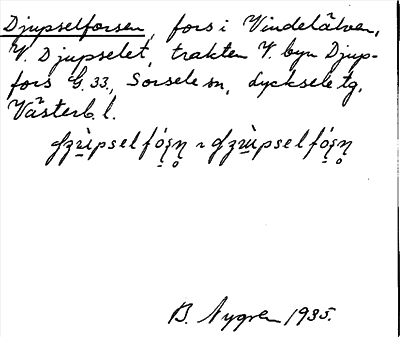 Djupselforsen, fors i Vindelälven,
V. Djupselet, trakten V. byn Djup-
fors G. 33, Sorsele sn, Lycksele tg,
Västerb. l.
B. Nygren 1935.